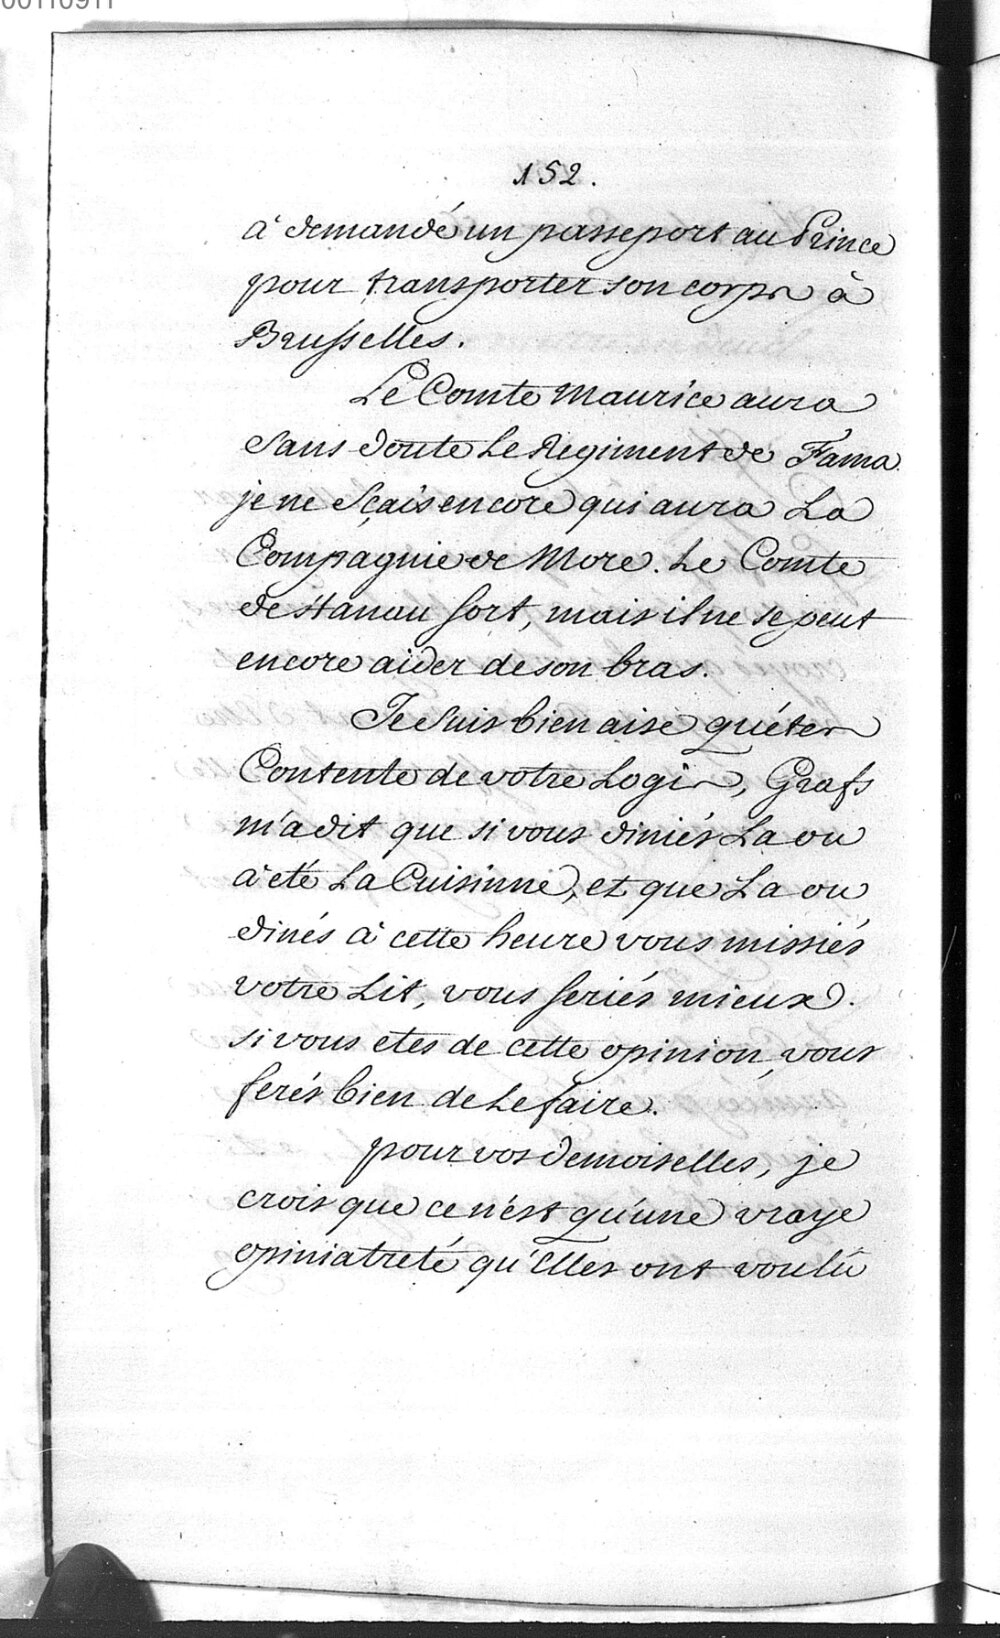 00110911
152.
à demandé un passeport au Prince
pour transporter son corps à
Brusselles.
Le Comte Maurice aura
Sans doute Le Regiment de Fama
je ne Sçais encore qui aura La
Compagnie de More. Le Comte
de Hanau sort, mais il ne se peut
encore aider de son bras.
Je Suis bien aise qu'étes
Contente de votre Logis, Grafs
m'a dit que si vous diniés La ou
à eté La Cuisinne, et que La ou
dinés à cette heure vous missiés
votre Lit, vous seriés mieux.
si vous etes de cette opinion, vous
ferés bien de Le faire.
pour vos demoiselles, je
crois que ce n'est qu'une vraye
opiniatreté qu'Elles ont voulû